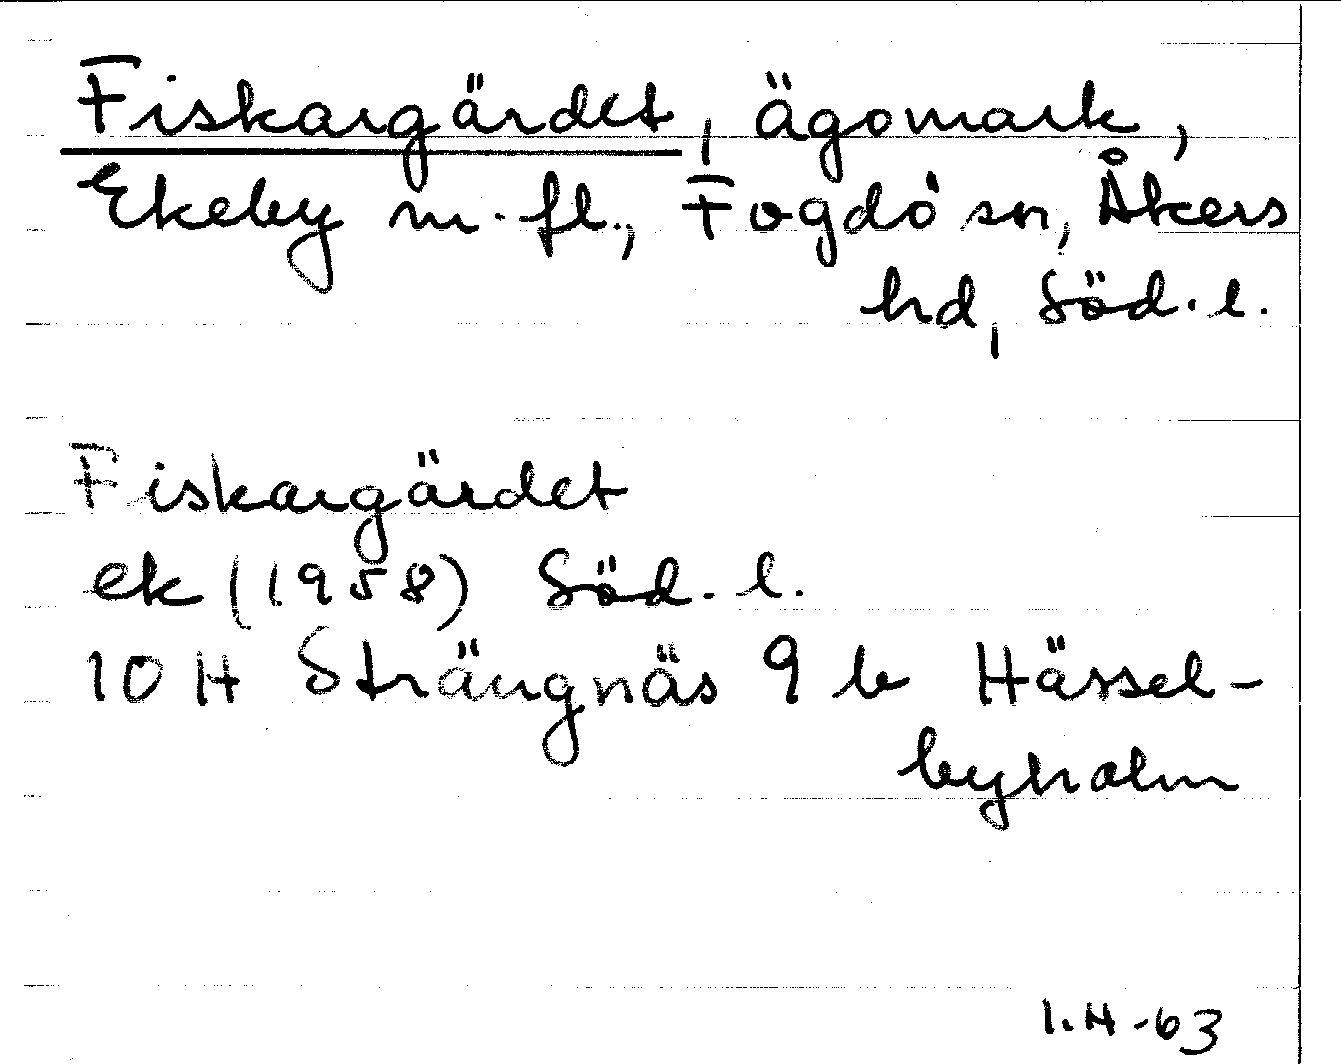 Fiskargärdet, ägomark,
Ekeby m.fl., Fogdö sn, Åkers
hd, Söd.l.
Fiskargärdet
ek (1958) Söd.l.
10 H Strängnäs 9 b Hässel-
byholm
I.H-63